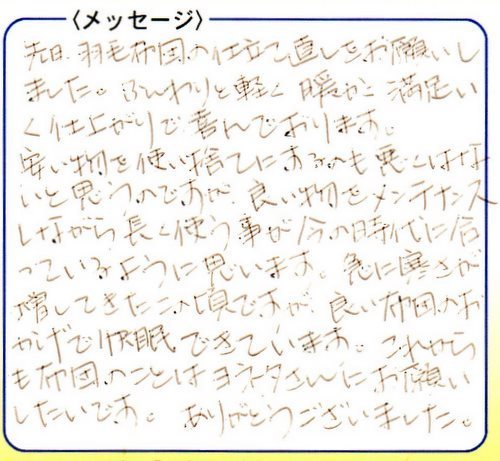 〈メッセージ〉
先日、羽毛布団の仕立て直しをお願いし
ました。ふんわりと軽く暖かく満足い
く仕上がりで喜んでおります。
安い物を使い捨てにするのも悪くはな
いと思うのですが、良い物をメンテナンス
しながら長く使う事が今の時代に合
っているように思います。急に寒さが
増してきたこの頃ですが、良い布団のお
かげで快眠できています。これから
も布団のことはヨネタさんにお願い
したいです。ありがとうございました。